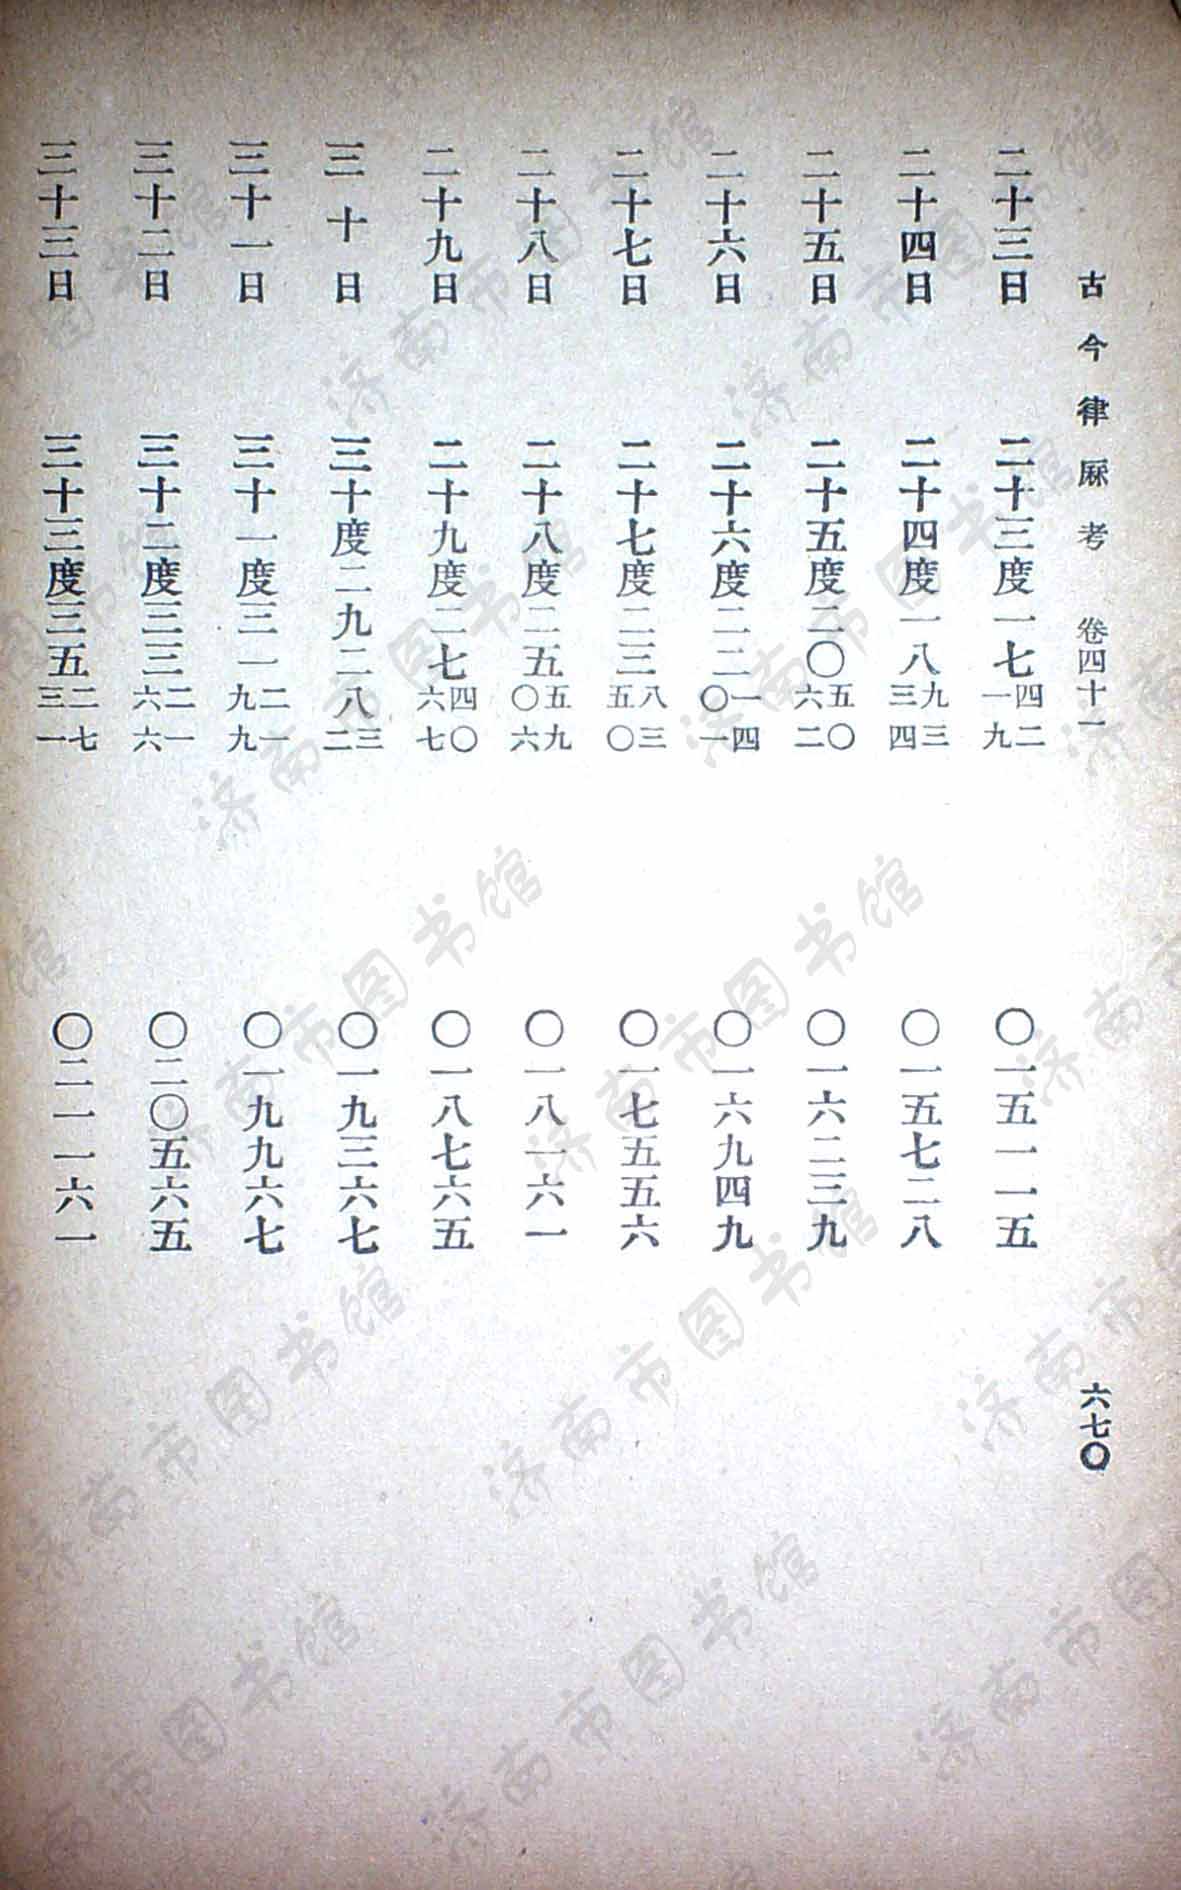 古今律厤考 卷四十一 六七〇
二十三日 二十三度一七四二一九 〇一五一一五
二十四日 二十四度一八九三三四 〇一五七二八
二十五日 二十五度二〇五〇六二 〇一六二三九
二十六日 二十六度二二一四〇一 〇一六九四九
二十七日 二十七度二三八三五〇 〇一七五五六
二十八日 二十八度二五五九〇六 〇一八一六一
二十九日 二十九度二七四〇六七 〇一八七六五
三十日 三十度二九二八三二 〇一九三六七
三十一日 三十一度三一二一九九 〇一九九六七
三十二日 三十二度三三二一六六 〇二〇五六五
三十三日 三十三度三五二七三一 〇二一一六一
济南市图书馆